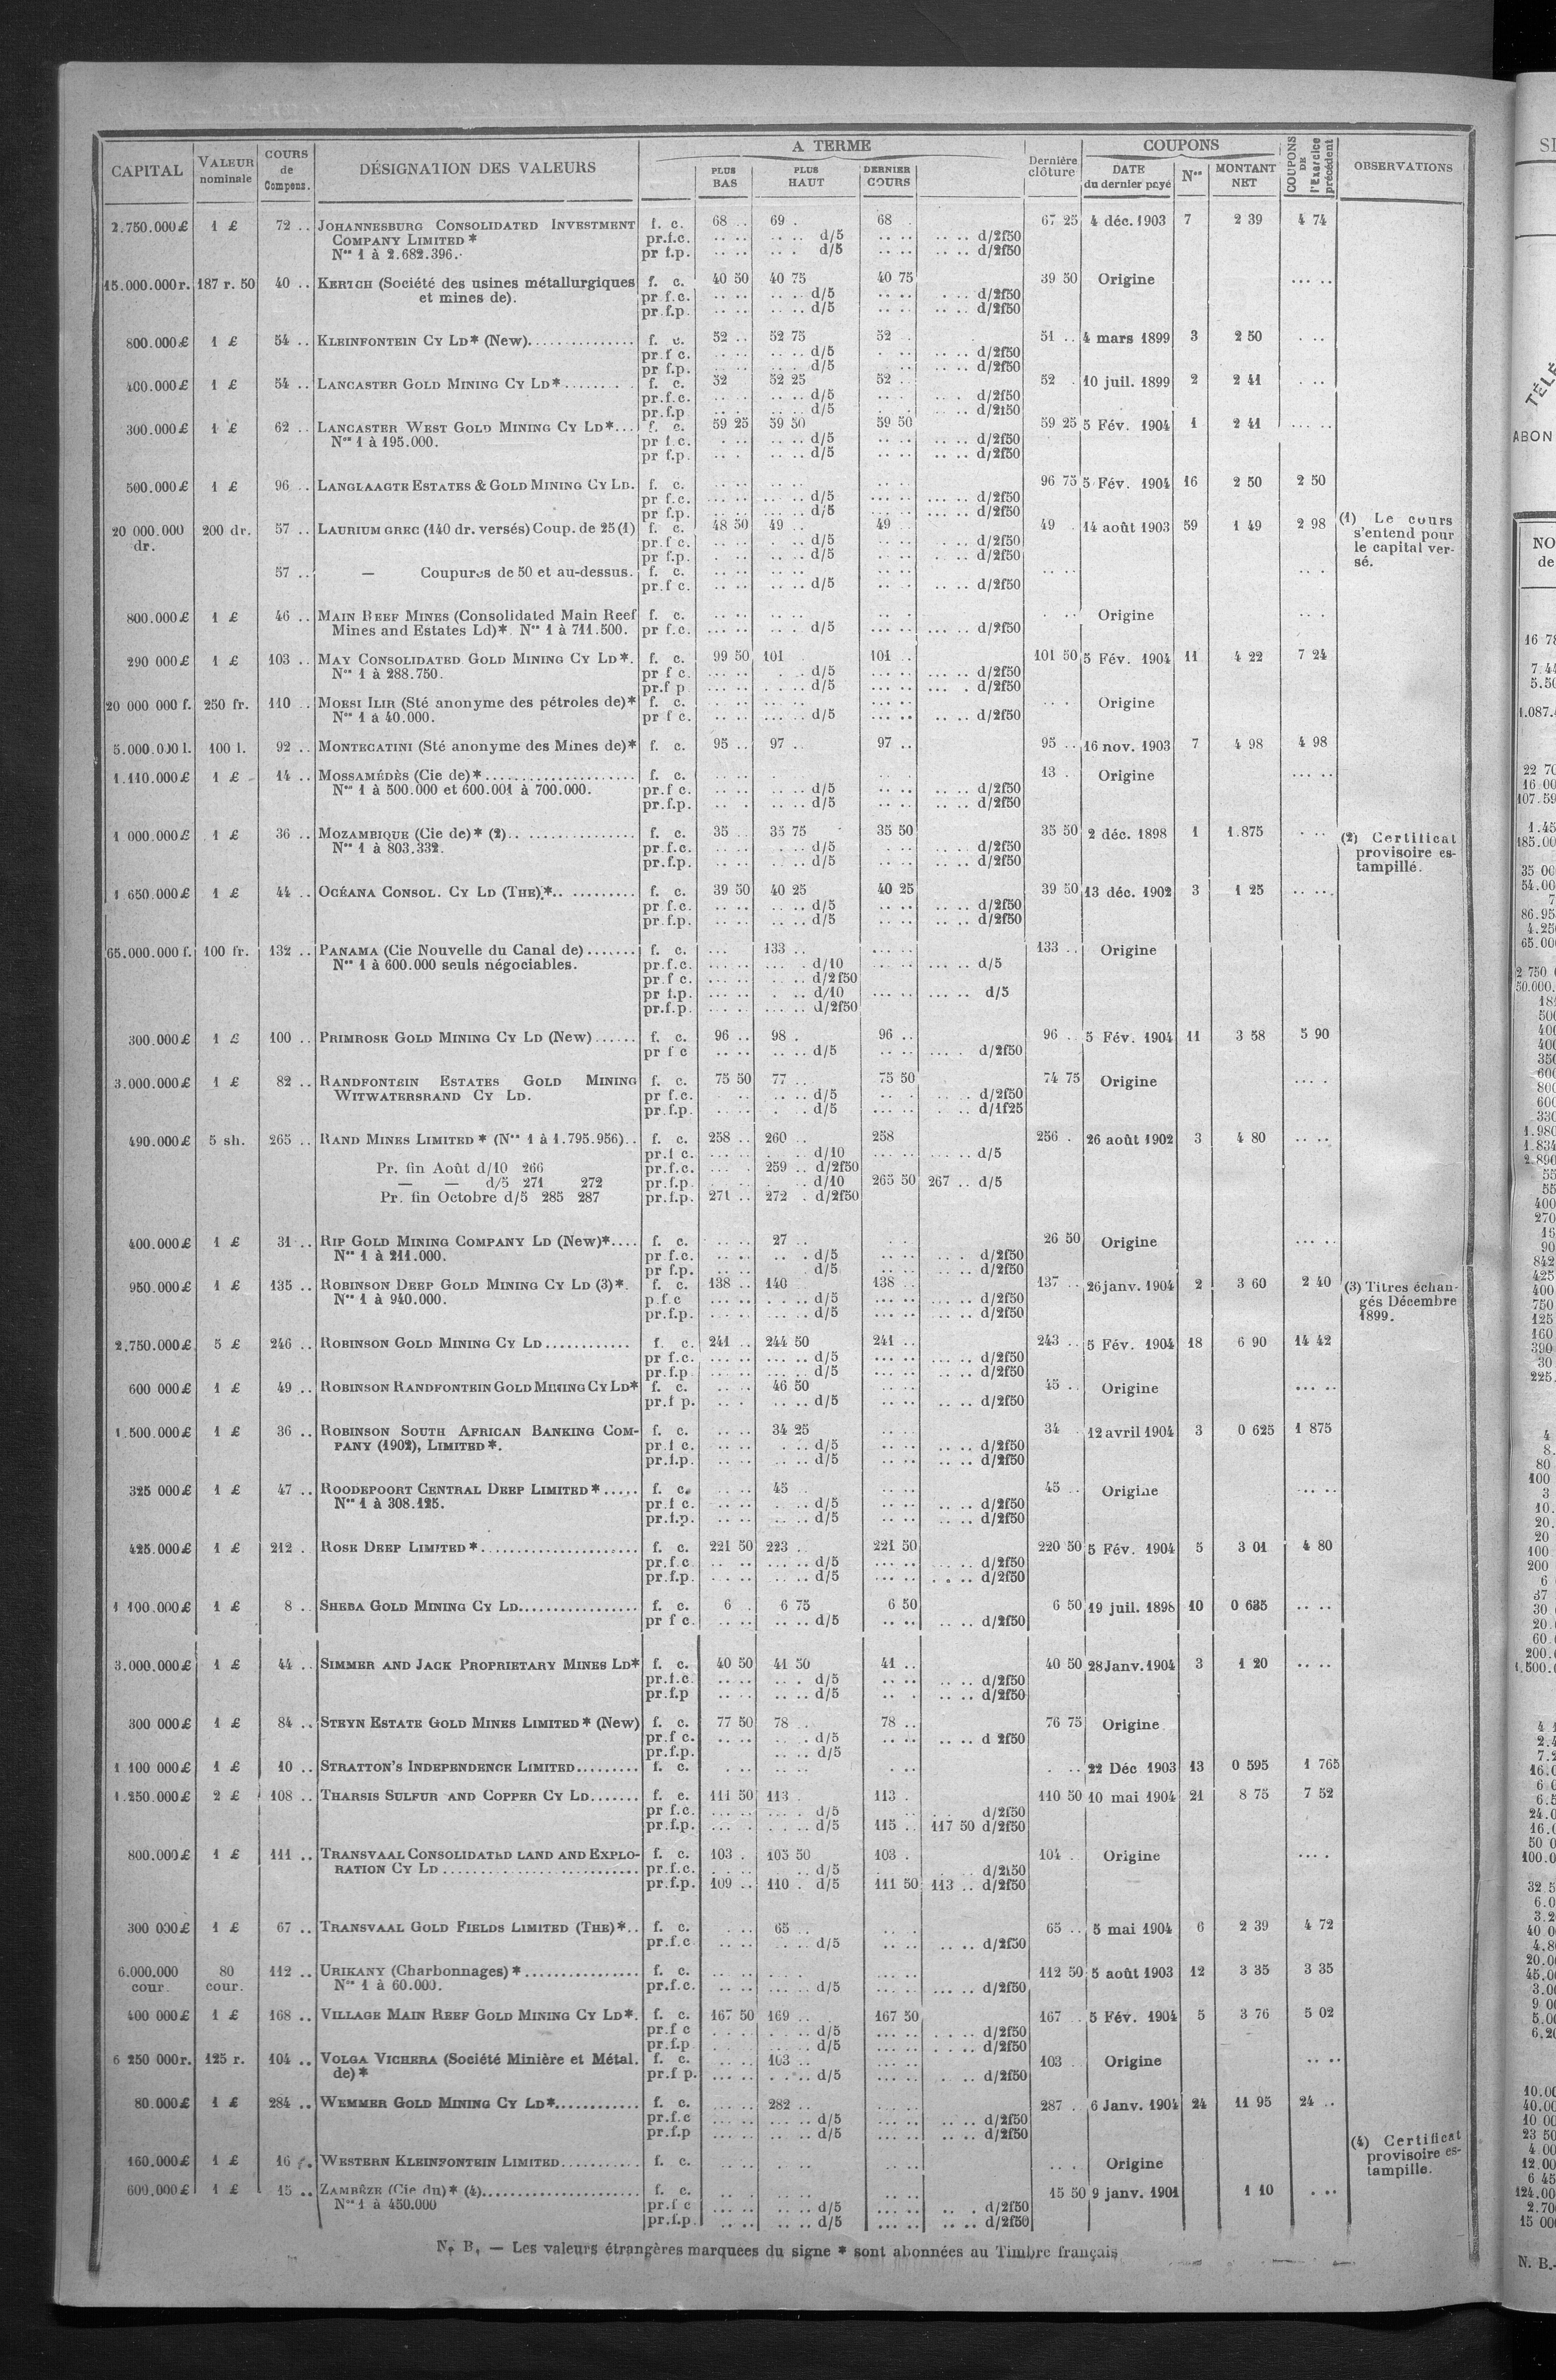 CAPITAL VALEUR nominale COURS de Compens. DÉSIGNATION DES VALEURS A TERME PLUS BAS PLUS HAUT DERNIER COURS Dernière clôture COUPONS DATE du dernier payé Nos MONTANT NET COUPONS DE l'Exercice précédent OBSERVATIONS
2.750.000 £ 1 £ 72 .. JOHANNESBURG CONSOLIDATED INVESTMENT f. c. 68 .. 69 . 68 . 67 25 4 déc. 1903 7 2 39 4 74
COMPANY LIMITED * pr.f.c. .. .. .. .. d/5 .. .. .. .. d/2f50
Nos 1 à 2.682.396. pr f.p. .. .. .. . d/5 .. .. .. .. d/2f50
15.000.000 r. 187 r. 50 40 .. KERTCH (Société des usines métallurgiques f. c. 40 50 40 75 40 75 39 50 Origine ... ..
et mines de). pr f.c. .. .. .. .. d/5 .. .. . .. d/2f50
pr.f.p. .. .. .. .. d/5 .. .. .. .. d/2f50
800.000 £ 1 £ 54 .. KLEINFONTEIN CY LD* (New).............. f. c. 52 .. 52 75 52 .. 51 .. 4 mars 1899 3 2 50 . ..
pr.f c. .. .. .. .. d/5 . .. .. .. d/2f50
pr f.p. .. .. .. .. d/5 .. .. .. .. d/2f50
400.000 £ 1 £ 54 .. LANCASTER GOLD MINING CY LD*......... f. c. 52 52 25 52 .. 52 . 10 juil. 1899 2 2 41 . ..
pr.f.c. .. .. .. .. d/5 .. .. .. . d/2f50
pr.f.p .. .. .. .. d/5 . . .. .. d/2f50
300.000 £ 1 £ 62 .. LANCASTER WEST GOLD MINING CY LD*... f. c. 59 25 59 50 59 50 59 25 5 Fév. 1904 1 2 41 ... ..
Nos 1 à 195.000. pr f.c. . .. .. .. d/5 .. .. .. .. d/2f50
pr f.p. .. . .. .. d/5 .. .. .. .. d/2f50
500.000 £ 1 £ 96 .. LANGLAAGTE ESTATES & GOLD MINING CY LD. f. c. .. .. .. .. .. .. 96 75 5 Fév. 1904 16 2 50 2 50
pr f.c. ... .. ... .. d/5 ... .. ... .. d/2f50
pr f.p. ... .. ... .. d/5 ... .. ... .. d/2f50
20 000.000 200 dr. 57 .. LAURIUM GREC (140 dr. versés) Coup. de 25 (1) f. c. 48 50 49 .. 49 .. 49 . 14 août 1903 59 1 49 2 98 (1) Le cours
dr. pr.f c. .. .. . .. d/5 .. .. .. .. d/2f50 s'entend pour
pr f.p. .. .. .. .. d/5 .. .. . .. d/2f50 le capital ver-
57 .. — Coupures de 50 et au-dessus. f. c. .. .. .. .. .. .. .. .. sé.
pr.f c. .. .. .. .. d/5 .. .. .. .. d/2f50
800.000 £ 1 £ 46 .. MAIN REEF MINES (Consolidated Main Reef f. c. .. .. .. .. .. . . .. Origine
Mines and Estates Ld)*. Nos 1 à 711.500. pr f.c. ... .. .. . d/5 ... .. ... .. d/2f50
290 000 £ 1 £ 103 .. MAY CONSOLIDATED GOLD MINING CY LD*. f. c. 99 50 101 101 .. 101 50 5 Fév. 1904 11 4 22 7 24
Nos 1 à 288.750. pr f c. ... .. . . d/5 ... .. ... .. d/2f50
pr.f p. ... .. . .. d/5 ... .. ... . d/2f50
20 000 000 f. 250 fr. 110 .. MORSI ILIR (Sté anonyme des pétroles de)* f. c. .. .. .. .. .. .. .. . Origine
Nos 1 à 40.000. pr f c. .. .. ... .. d/5 .. .. .. .. d/2f50
5.000.000 l. 100 l. 92 .. MONTECATINI (Sté anonyme des Mines de)* f. c. 95 .. 97 .. 97 .. 95 .. 16 nov. 1903 7 4 98 4 98
1.110.000 £ 1 £ 14 .. MOSSAMÉDÈS (Cie de)*.................... f. c. .. .. .. . .. 13 . Origine ... ..
Nos 1 à 500.000 et 600.001 à 700.000. pr.f c. .. .. .. .. d/5 .. .. .. .. d/2f50
pr.f.p. .. . .. .. d/5 .. .. .. .. d/2f50
1 000.000 £ 1 £ 36 .. MOZAMBIQUE (Cie de)* (2)................ f. c. 35 .. 35 75 35 50 35 50 2 déc. 1898 1 1.875 . .. (2) Certificat
Nos 1 à 803.332. pr.f.c. .. .. . .. d/5 . .. .. .. d/2f50 provisoire es-
pr.f.p. .. .. .. .. d/5 .. .. .. .. d/2f50 tampillé.
1 650.000 £ 1 £ 44 .. OCÉANA CONSOL. CY LD (THE).*.......... f. c. 39 50 40 25 40 25 39 50 13 déc. 1902 3 1 25 .. ..
pr f.c. .. .. .. .. d/5 .. .. .. .. d/2f50
pr.f.p. .. .. .. .. d/5 .. .. .. .. d/2f50
65.000.000 f. 100 fr. 132 .. PANAMA (Cie Nouvelle du Canal de)....... f. c. ... 133 .. ... .. 133 .. Origine
Nos 1 à 600.000 seuls négociables. pr.f.c. ... .. ... . d/10 ... .. ... .. d/5
pr.f c. ... .. . .. d/2f50
pr f.p. ... .. . .. d/10 ... .. ... .. d/5
pr.f.p. ... .. ... .. d/2f50
300.000 £ 1 £ 100 .. PRIMROSE GOLD MINING CY LD (New)...... f. c. 96 .. 98 . 96 .. 96 .. 5 Fév. 1904 11 3 58 5 90
pr f c .. .. .. .. d/5 .. .. ... . d/2f50
3.000.000 £ 1 £ 82 .. RANDFONTEIN ESTATES GOLD MINING f. c. 75 50 77 .. 75 50 74 75 Origine ... .
WITWATERSRAND CY LD. pr f.c. .. .. .. d/5 .. . .. .. d/2f50
pr.f.p. .. .. . .. d/5 ... .. . .. d/1f25
490.000 £ 5 sh. 265 .. RAND MINES LIMITED * (Nos 1 à 1.795.956).. f. c. 258 .. 260 .. 258 256 . 26 août 1902 3 4 80 .. ..
pr.f c. ... .. . .. d/10 ... .. ... .. d/5
Pr. fin Août d/10 266 pr.f.c. ... . 259 .. d/2f50
— — d/5 271 272 pr.f.p. . .. . . d/10 265 50 267 .. d/5
Pr. fin Octobre d/5 285 287 pr.f.p. 271 .. 272 . d/2f50
400.000 £ 1 £ 31 .. RIP GOLD MINING COMPANY LD (New)*.... f. c. .. .. 27 .. . . 26 50 Origine ... ..
Nos 1 à 211.000. pr f.c. .. .. .. . d/5 .. .. .. . d/2f50
pr f.p. .. .. . d/5 .. .. .. .. d/2f50
950.000 £ 1 £ 135 .. ROBINSON DEEP GOLD MINING CY LD (3)*. f. c. 138 .. 140 138 .. 137 .. 26 janv. 1904 2 3 60 2 40 (3) Titres échan-
Nos 1 à 940.000. p.f.c ... .. . .. d/5 ... .. ... .. d/2f50 gés Décembre
pr.f.p. ... .. ... .. d/5 ... .. ... .. d/2f50 1899.
2.750.000 £ 5 £ 246 .. ROBINSON GOLD MINING CY LD............ f. c. 241 .. 244 50 241 .. 243 .. 5 Fév. 1904 18 6 90 14 42
pr f.c. ... .. ... .. d/5 ... .. ... .. d/2f50
pr.f.p ... .. ... .. d/5 ... .. ... .. d/2f50
600 000 £ 1 £ 49 .. ROBINSON RANDFONTEIN GOLD MINING CY LD* f. c. .. . 46 50 .. .. 45 .. Origine ... ..
pr.f p. .. . .. .. d/5 .. .. .. .. d/2f50
1.500.000 £ 1 £ 36 .. ROBINSON SOUTH AFRICAN BANKING COM- f. c. .. .. 34 25 .. .. 34 . 12 avril 1904 3 0 625 1 875
PANY (1902), LIMITED *. pr.f c. .. .. . .. d/5 .. .. .. .. d/2f50
pr.f.p. .. .. .. .. d/5 .. .. .. .. d/2f50
325 000 £ 1 £ 47 .. ROODEPOORT CENTRAL DEEP LIMITED *..... f. c. .. .. 45 .. .. .. 45 .. Origine ... ..
Nos 1 à 308.125. pr.f c. .. .. .. .. d/5 .. .. .. .. d/2f50
pr.f.p. .. .. .. .. d/5 .. .. .. .. d/2f50
425.000 £ 1 £ 212 . ROSE DEEP LIMITED *...................... f. c. 221 50 223 .. 221 50 220 50 5 Fév. 1904 5 3 01 4 80
pr.f.c. .. .. ... .. d/5 ... .. ... .. d/2f50
pr.f.p. ... .. ... .. d/5 ... .. . . .. d/2f50
1 100.000 £ 1 £ 8 .. SHEBA GOLD MINING CY LD................. f. c. 6 . 6 75 6 50 6 50 19 juil. 1898 10 0 635 .. ..
pr f c. .. .. .. .. d/5 .. .. .. .. d/2f50
3.000.000 £ 1 £ 44 .. SIMMER AND JACK PROPRIETARY MINES LD* f. c. 40 50 41 50 41 .. 40 50 28 Janv. 1904 3 1 20 .. ..
pr.f.c. .. .. .. . d/5 .. .. .. .. d/2f50
pr.f.p .. .. .. .. d/5 .. . .. .. d/2f50
300 000 £ 1 £ 84 .. STEYN ESTATE GOLD MINES LIMITED * (New) f. c. 77 50 78 .. 78 .. 76 75 Origine
pr.f c. .. .. .. . d/5 .. .. .. .. d 2f50
pr.f.p. .. .. d/5
1 100 000 £ 1 £ 10 .. STRATTON'S INDEPENDENCE LIMITED......... f. c. . .. .. .. . .. . .. 22 Déc 1903 13 0 595 1 765
1.250.000 £ 2 £ 108 .. THARSIS SULFUR AND COPPER CY LD....... f. c. 111 50 113 . 113 . 110 50 10 mai 1904 21 8 75 7 52
pr f.c. ... .. ... . d/5 .. . . d/2f50
pr.f.p. ... . . .. d/5 115 .. 117 50 d/2f50
800.000 £ 1 £ 111 .. TRANSVAAL CONSOLIDATED LAND AND EXPLO- f. c. 103 . 103 50 103 . 104 . Origine ... .
RATION CY LD ......................... pr.f.c. . .. .. d/5 . .. . .. d/2f50
pr.f.p. 109 .. 110 . d/5 111 50 113 .. d/2f50
300 000 £ 1 £ 67 .. TRANSVAAL GOLD FIELDS LIMITED (THE)*.. f. c. . .. 65 .. .. . 65 .. 5 mai 1904 6 2 39 4 72
pr.f.c .. .. .. .. d/5 .. .. .. .. d/2f50
6.000.000 80 112 .. URIKANY (Charbonnages) *................ f. c. .. .. .. .. ... .. 112 50 5 août 1903 12 3 35 3 35
cour. cour. Nos 1 à 60.000. pr.f.c. .. .. ... .. d/5 ... .. ... .. d/2f50
400 000 £ 1 £ 168 .. VILLAGE MAIN REEF GOLD MINING CY LD*. f. c. 167 50 169 .. 167 50 167 .. 5 Fév. 1904 5 3 76 5 02
pr.f c .. . . .. d/5 ... .. . .. .. d/2f50
pr.f.p . .. .. .. d/5 ... .. . .. d/2f50
6 250 000 r. 125 r. 104 .. VOLGA VICHERA (Société Minière et Métal. f. c. .. .. 103 .. .. .. 103 .. Origine .. ..
de) * pr.f p. ... .. . .. d/5 ... .. . .. d/2f50
80.000 £ 1 £ 284 .. WEMMER GOLD MINING CY LD*............ f. c. ... .. 282 .. .. .. 287 . 6 Janv. 1904 24 11 95 24 ..
pr.f.c ... .. ... .. d/5 ... .. .. .. d/2f50
pr.f.p ... .. ... .. d/5 ... .. .. .. d/2f50 (4) Certificat
160.000 £ 1 £ 16 .. WESTERN KLEINFONTEIN LIMITED........... f. c. .. .. .. .. .. .. .. . Origine provisoire es-
600.000 £ 1 £ 15 .. ZAMBÈZE (Cie du)* (4)..................... f. c. .. .. .. .. .. .. 15 50 9 janv. 1901 1 10 . .. tampille.
Nos 1 à 450.000 pr.f c .. .. .. .. d/5 ... .. .. . d/2f50
pr.f.p. .. .. .. .. d/5 ... .. .. .. d/2f50
N. B. — Les valeurs étrangères marquees du signe * sont abonnées au Timbre français
TÉLÉ
ABON
NO
de
N. B.-